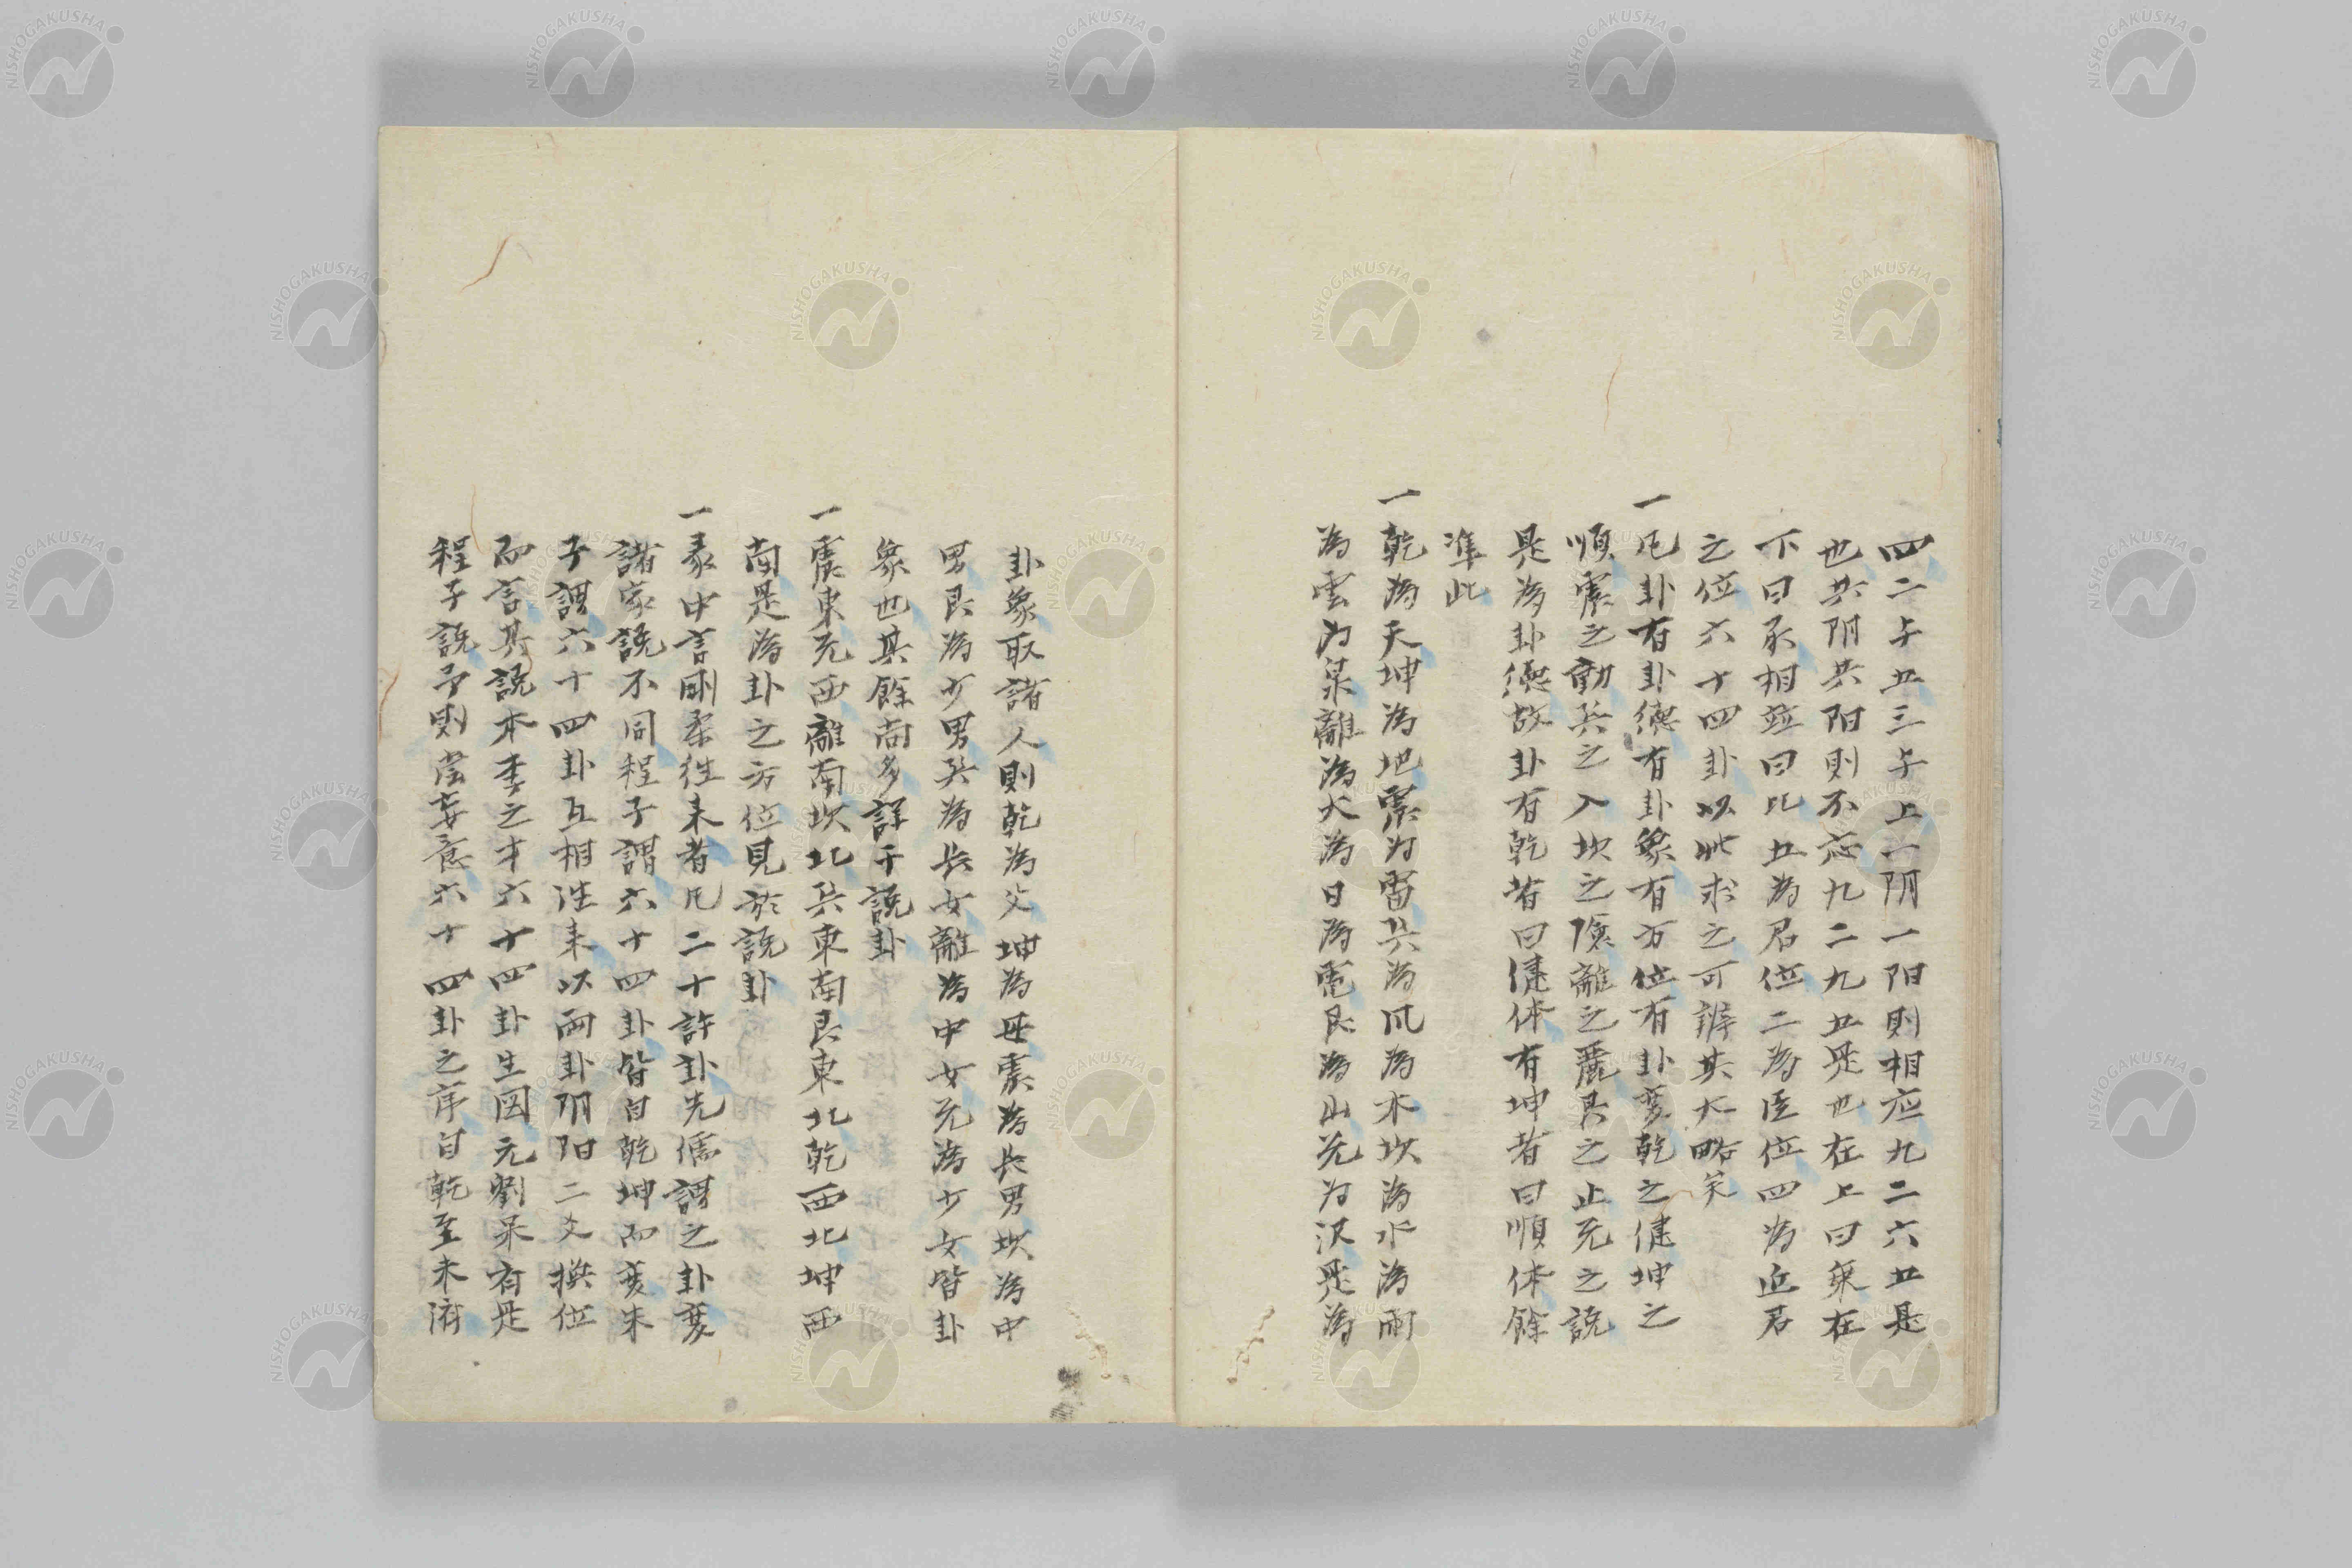 四二与五三与上一阴一阳則相应九二六五是
也共阴共阳則不应九二九五是也在上曰乘在
下曰承相並曰比五為君位二為臣位四為近君
之位六十四卦以此求之可辨其大略矣
一凡卦有卦德有卦象有方位有卦変乾之健坤之
順震之動巽之入坎之險離之麗艮之止兌之説
是為卦德故卦有乾者曰健体有坤者曰順体餘
准此
一乾為天坤為地震为雷巽為风為木坎為水為雨
為雲为泉離為火為日為電艮為山兌为沢是為
卦象取諸人則乾為父坤為母震為長男坎為中
男艮為少男巽為長女離為中女兌為少女皆卦
象也其餘尚多詳于説卦
一震東兌西離南坎北巽東南艮東北乾西北坤西
南是為卦之方位見於説卦
一彖中言剛柔往来者凡二十許卦先儒謂之卦変
諸家説不同程子謂六十四卦皆自乾坤而変朱
子謂六十四卦互相往来以両卦阴阳二爻換位
而言其説本李之才六十四卦生図元劉杲有是
程子説予則嘗妄意六十四卦之序自乾至未済